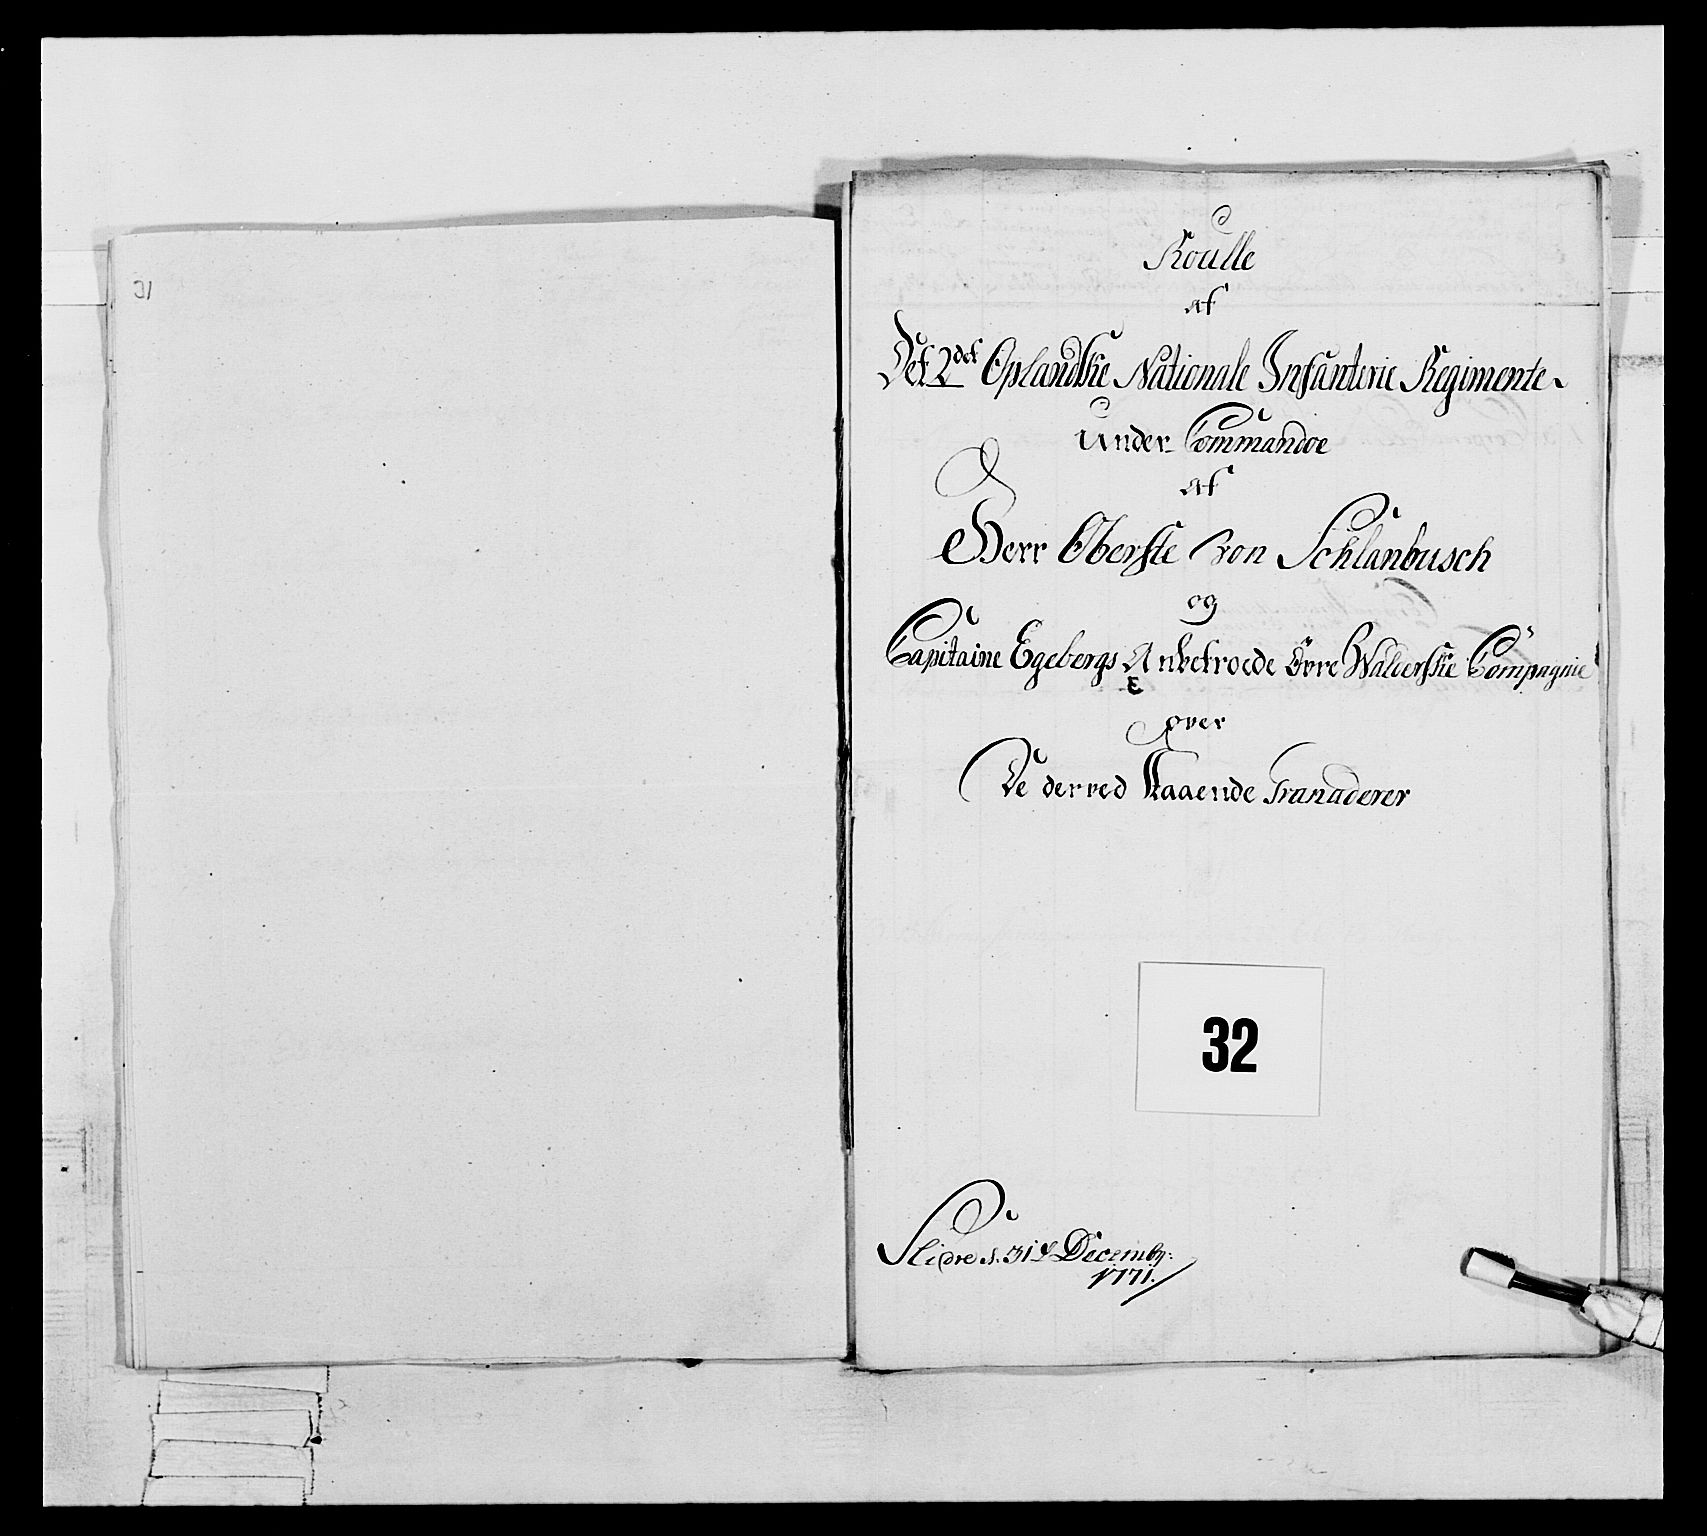 31
Roulle
af
Det 2det Oplandske Nationale Infanterie Regimente
Under Commandoe
af
Herr Oberste von Schlanbusch
og
Capitaine Egebergs Anbetroede Övre Walderske Compagnie
over
De derved staaende Granaderer
32
Slidre d. 31t Decembr:
1771.